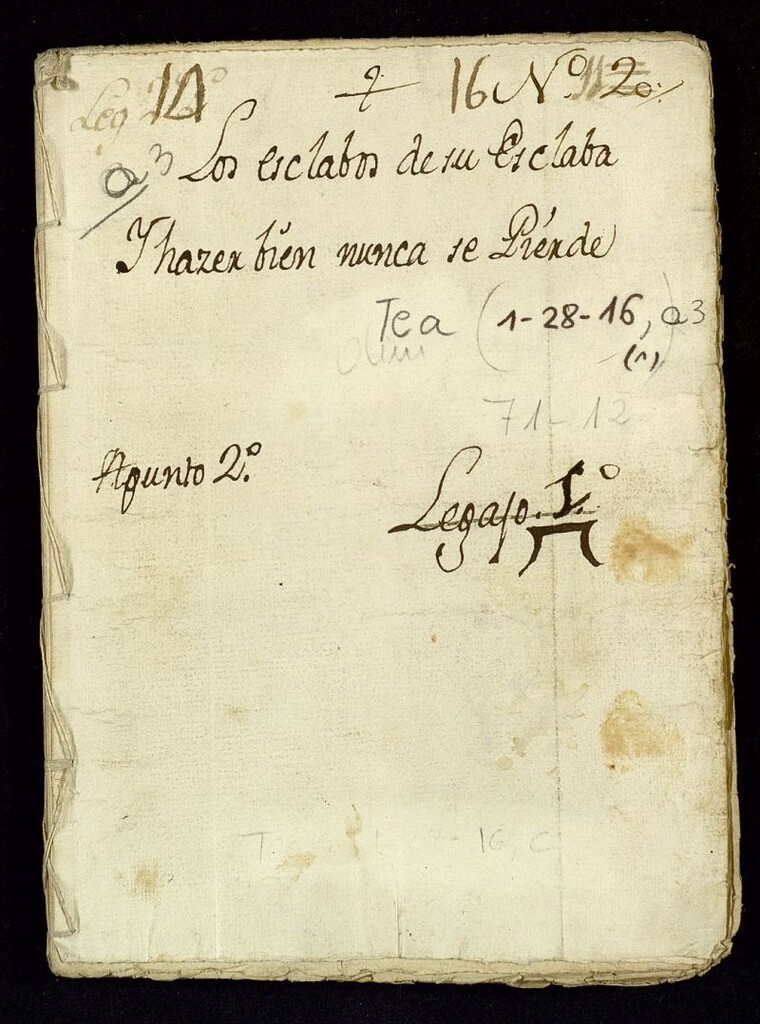 Leg 14 16 Nº 2º
a 3 Los esclabos de su Esclaba
Y hazer bien nunca se Piérde
Tea (1-28-16, a3)
(1)
71-12
Apunto 2.º
Legajo. 1.º
16, C